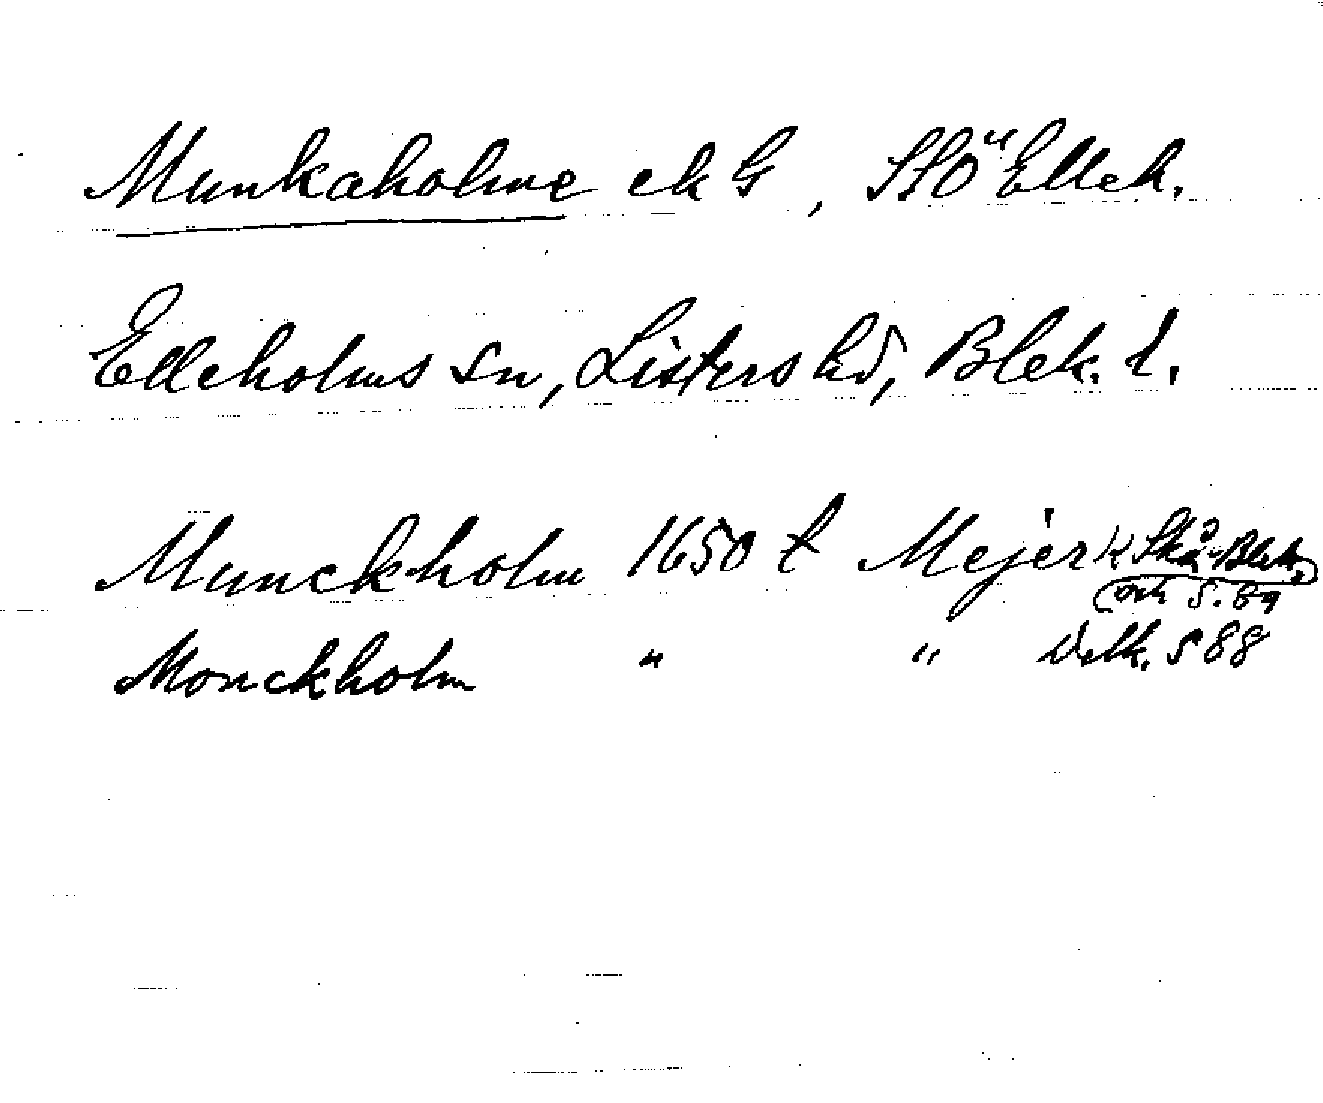 Munkaholme ek G, StÖ Elleh.
Elleholms sn, Listers hd, Blek. l.
Munckholm 1650 t Mejer k Skå-Blek.
och s. 89
Monckholm " " Delk. s 88